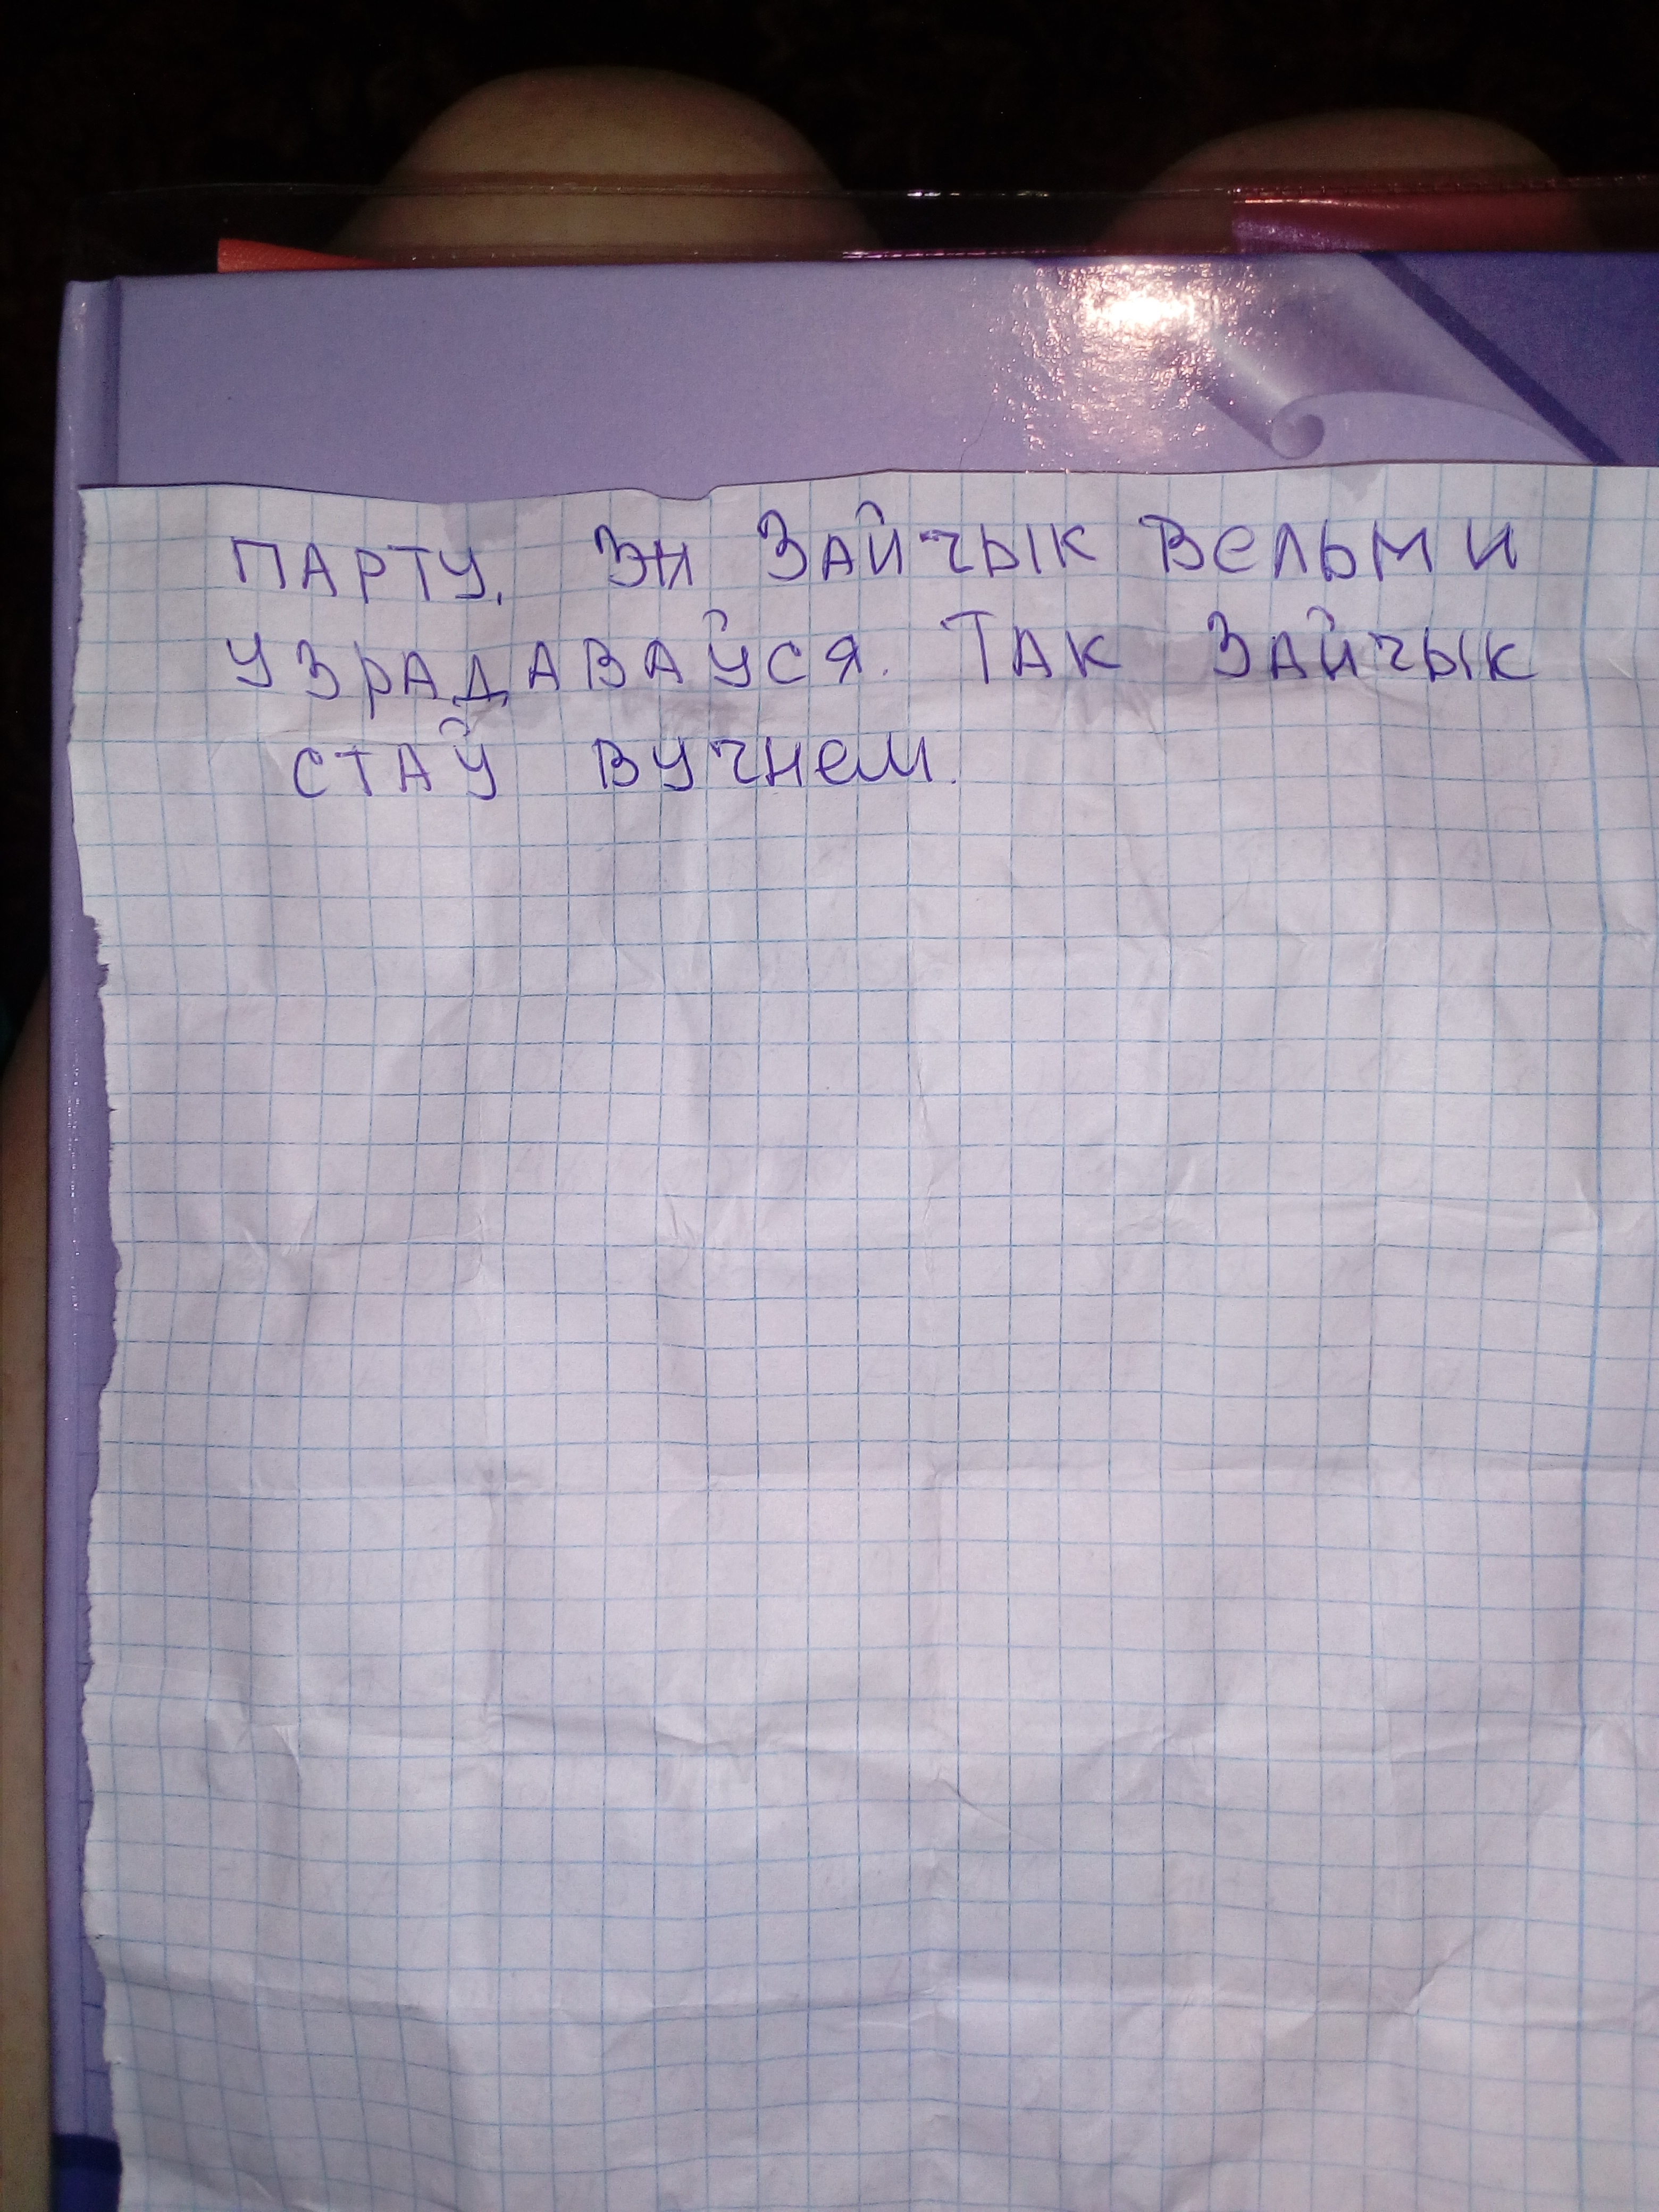 ПАРТУ. ЗАЙЧЫК ВЕЛЬМИ
УЗРАДАВАЎСЯ. ТАК ЗАЙЧЫК
СТАЎ ВУЧНЕМ.